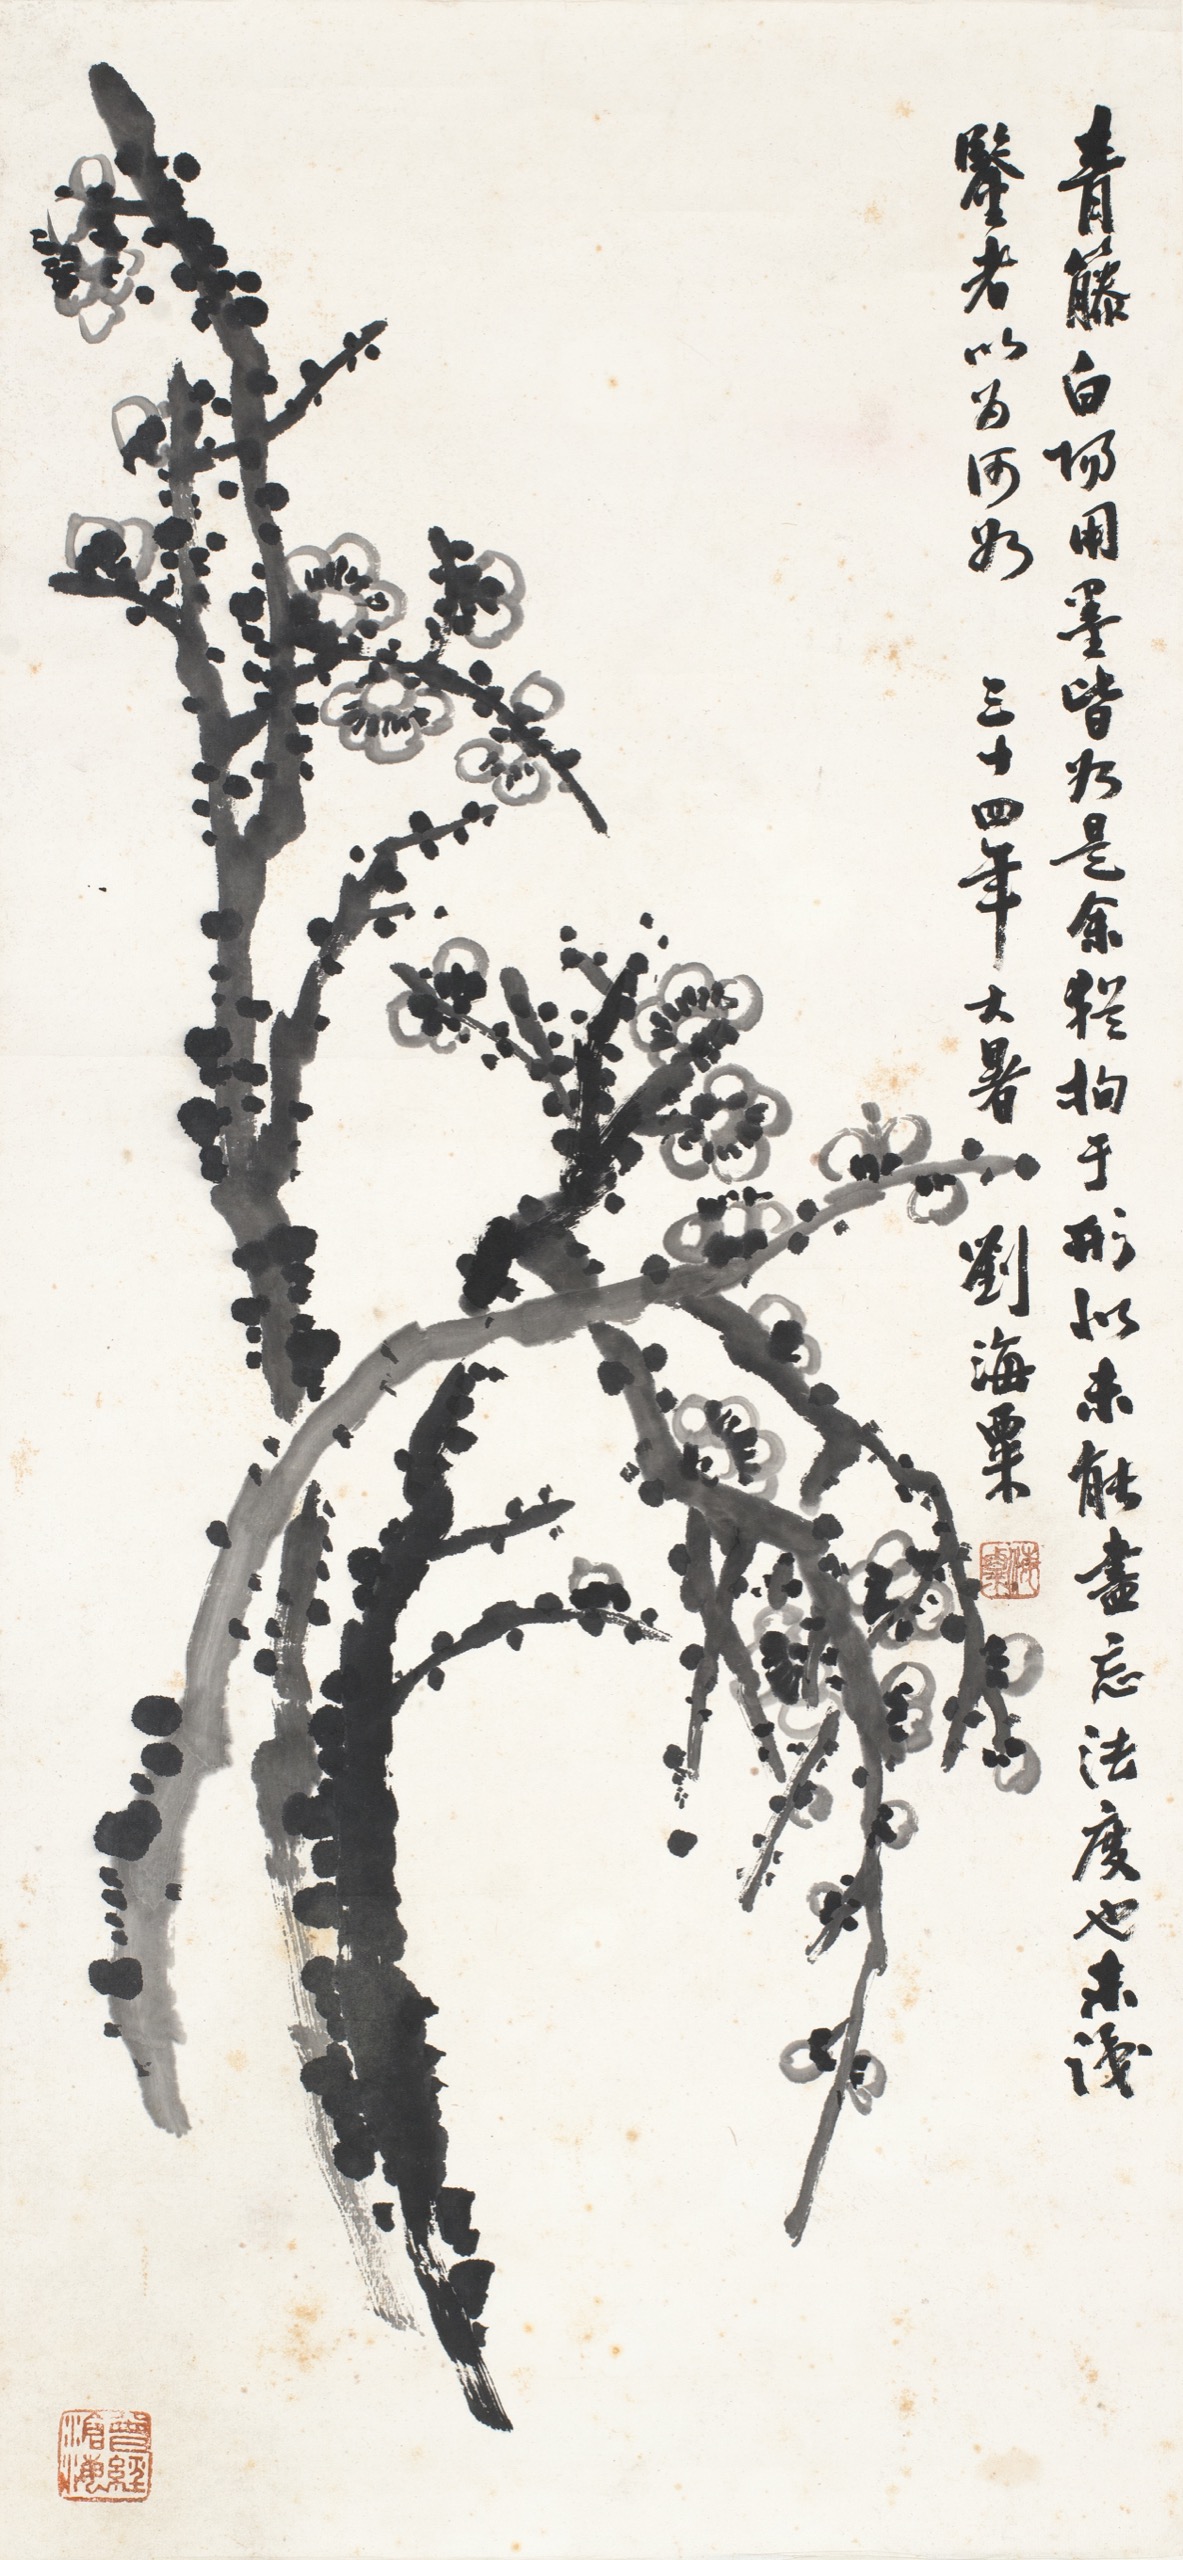 青藤白陽用墨皆如是余猶拘于形似未能盡忘法度也未識
鑒者以為何如 三十四年大暑 劉海粟
海粟
曾經滄海